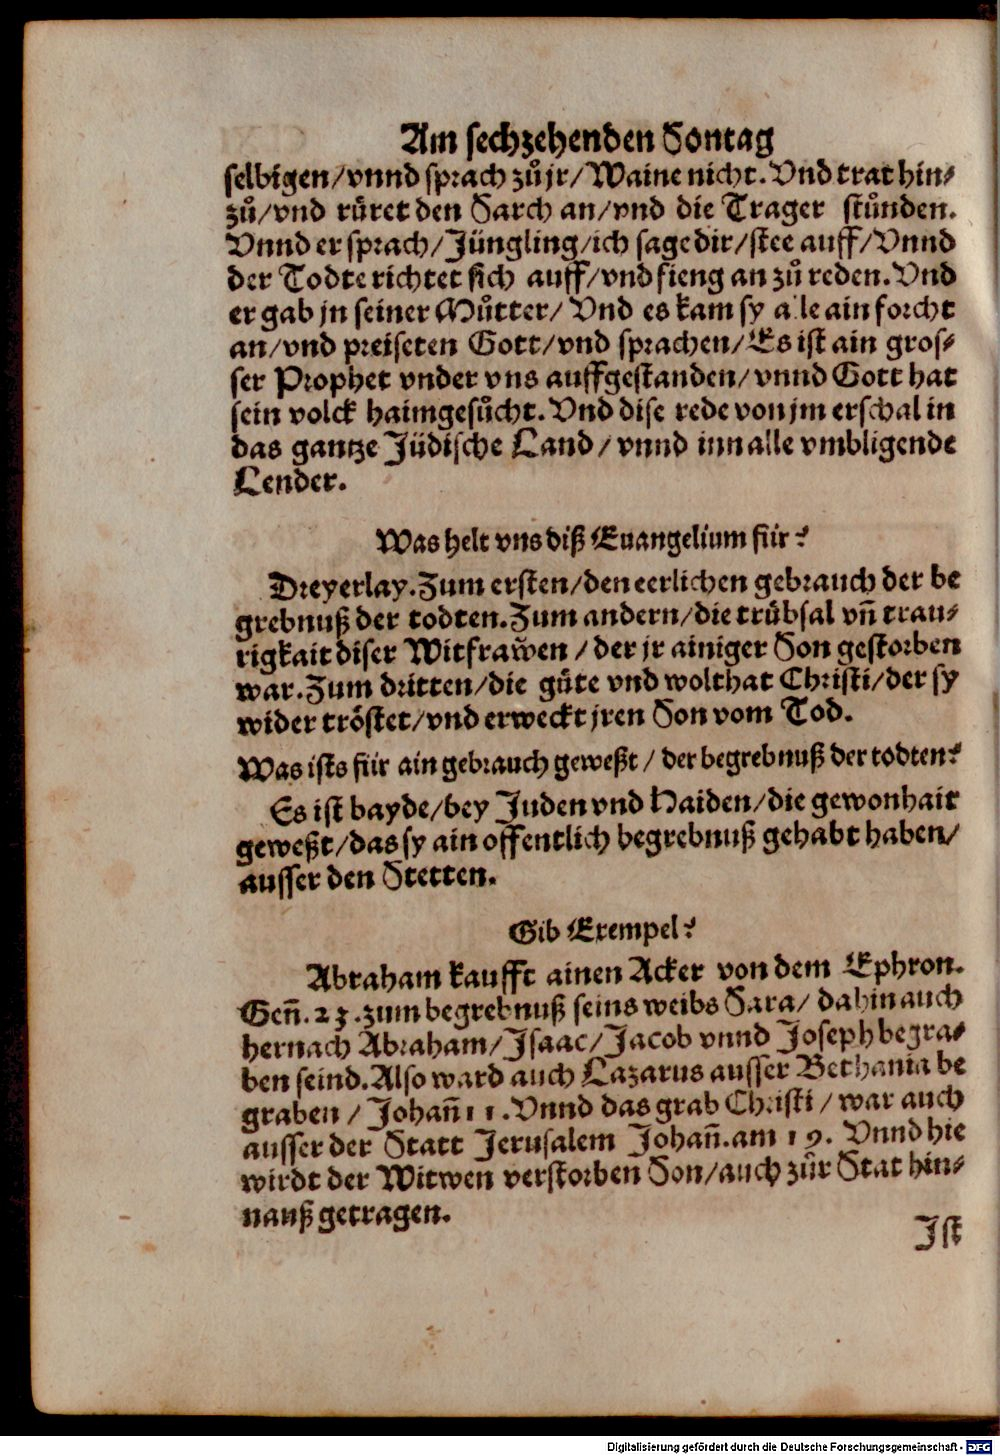 Am sechzehenden Sontag
selbigen/vnnd sprach zů jr/Waine nicht. Vnd trat hin⸗
zů/vnd rüret den Sarch an/vnd die Trager stůnden.
Vnnd er sprach/Jüngling/ich sage dir/stee auff/Vnnd
der Todte richtet sich auff/vnd fieng an zů reden. Vnd
er gab jn seiner Můtter/ Vnd es kam sy alle ain forcht
an/vnd preiseten Gott/vnd sprachen/Es ist ain gros⸗
ser Prophet vnder vns auffgestanden/vnnd Gott hat
sein volck haimgesůcht. Vnd dise rede von jm erschal in
das gantze Jüdische Land/vnnd inn alle vmbligende
Lender.
Was helt vns diß Euangelium für?
Dreyerlay. Zum ersten/den eerlichen gebrauch der be
grebnuß der todten. Zum andern/die trübsal vñ trau⸗
rigkait diser Witfrawen/der jr ainiger Son gestorben
war. Zum dritten/die güte vnd wolthat Christi/der sy
wider tröstet/vnd erweckt jren Son vom Tod.
Was ists für ain gebrauch geweßt/der begrebnuß der todten?
Es ist bayde/bey Juden vnd Haiden/die gewonhait
geweßt/das sy ain offentlich begrebnuß gehabt haben/
ausser den Stetten.
Gib Exempel?
Abraham kaufft ainen Acker von dem Ephron.
Geñ. 23. zum begrebnuß seins weibs Sara/ dahin auch
hernach Abraham/Isaac/Jacob vnnd Joseph begra⸗
ben seind. Also ward auch Lazarus ausser Bethania be
graben/Johañ 11. Vnnd das grab Christi/war auch
ausser der Statt Jerusalem Johañ. am 19. Vnnd hie
wirdt der Witwen verstorben Son/auch zůr Stat hin⸗
nauß getragen.
Ist
Digitalisierung gefördert durch die Deutsche Forschungsgemeinschaft - DFG